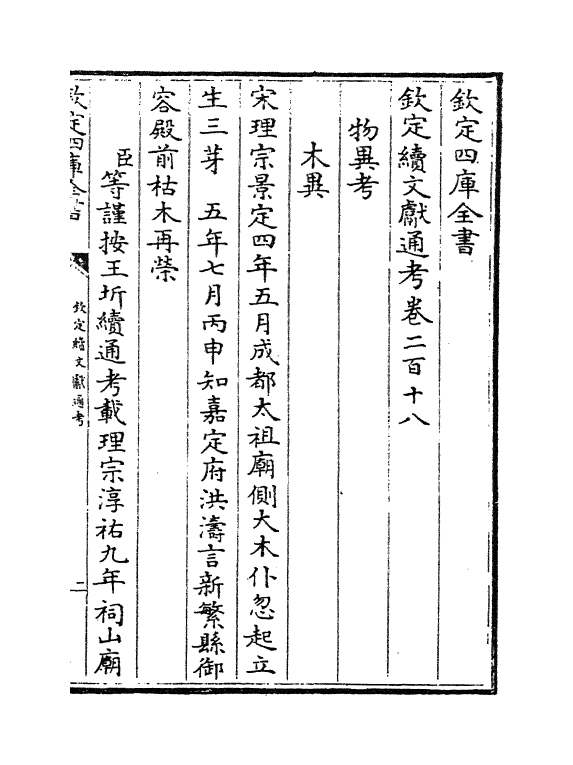 欽定四庫全書
欽定續文獻通考卷二百十八
物異考
木異
宋理宗景定四年五月成都太祖廟側大木仆忽起立
生三芽　五年七月丙申知嘉定府洪濤言新繁縣御
容殿前枯木再榮
臣等謹按王圻續通考載理宗淳祐九年祠山廟
欽定四庫全書
欽定續文獻通考
二